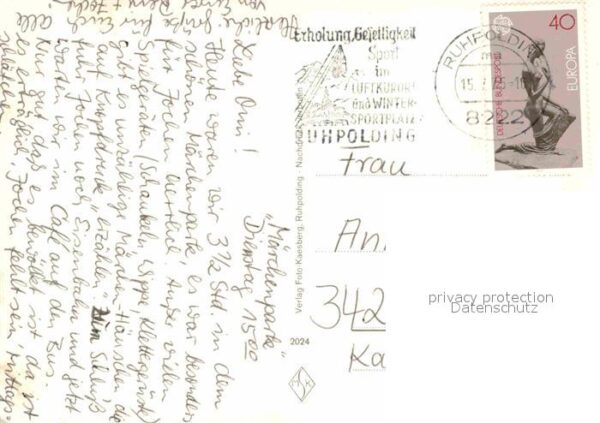 "Märchenpark"
Dienstag 15.00
Liebe Omi!
Heute waren wir 3 1/2 Std. in dem
schönen Märchenpark, es war besonders
für Jochen herrlich. Außer vielen
Spielgeräten (Schaukeln, Wippe, Klettergerüste)
gibt es unzählige Märchen-Häuschen die
auf Knopfdruck "erzählen" Zum Schluß
fuhr Jochen noch Eisenbahn und jetzt
warten wir im Café auf den Bus.
Nur gut, daß es bewölkt ist, da ist
es erträglich, Jochen fehlt sein Mittags-
schläfchen
Herzliche Grüße für Euch alle
von Eurer
+ Jochen
Erholung, Geselligkeit
Sport
im
LUFTKURORT
und WINTER-
SPORTPLATZ
RUHPOLDING
RUHPOLDING
15.7.
8222
40
EUROPA
DEUTSCHE BUNDESPOST
Frau
An
342
Ka
Verlag Foto-Kaesberg, Ruhpolding - Nachdruck
2024
privacy protection
Datenschutz